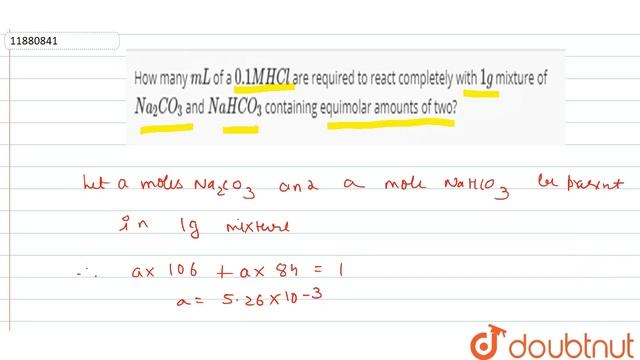 11880841
How many mL of a 0.1MHCl are required to react completely with 1g mixture of
Na₂CO₃ and NaHCO₃ containing equimolar amounts of two?
Let a moles Na₂CO₃ and a mole NaHCO₃ be present
in 1g mixture
∴ a× 106 + a× 84 = 1
a = 5.26 × 10-3
doubtnut